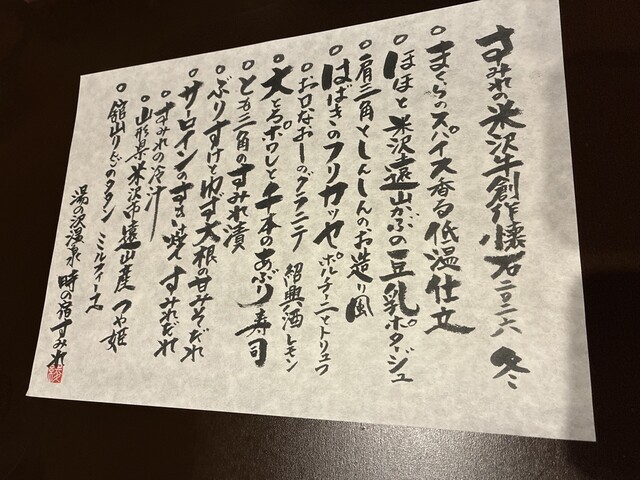 すみれの米沢牛創作懐石二〇二六 冬
○まくらのスパイス香る低温仕立
○ほほと米沢遠山かぶの豆乳ポタージュ
○肩三角としんしんのお造り風
○はばきのフリカッセ ポルチーニとトリュフ
○お口なおしのグラニテ 紹興酒レモン
○大とろポワレと千本のあぶり寿司
○とも三角のすみれ漬
○ぶりすけとゆず大根の甘みそだれ
○サーロインのすき焼 すみれだれ
○すみれの冷汁
○山形県米沢市遠山産 つや姫
○舘山りんごのタタン ミルフィーユ
湯の沢温泉 時の宿すみれ